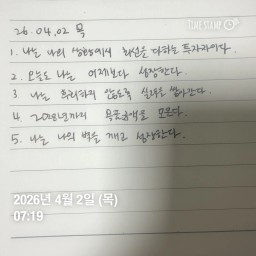 TIMESTAMP
26.04.02 목
1. 나는 나의 상황에서 최선을 다하는 투자자이다.
2. 오늘도 나는 어제보다 성장한다.
3. 나는 무리하지 않도록 실력을 쌓아간다.
4. 2028년까지 목표금액을 모은다.
5. 나는 나의 벽을 깨고 성장한다.
2026년 4월 2일 (목)
07:19